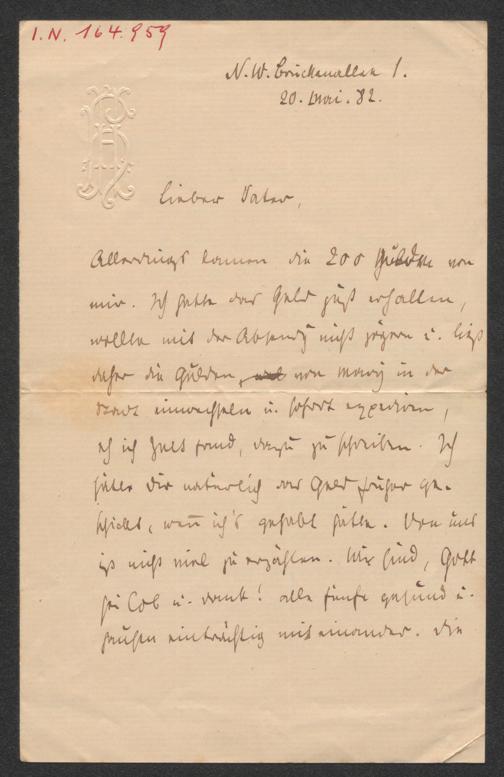 I.N. 164.959
N.W. Brückenallee 1.
20. Mai. 82.
Lieber Vater,
Allerdings kamen die 200 Gulden von
mir. Ich hatte das Geld just erhalten,
wollte mit der Absendg nicht zögern u. ließ
daher die Gulden, von Mary in der
Stadt einwechseln u. sofort expediren,
eh ich Zeit fand, dazu zu schreiben. Ich
hätte Dir natürlich das Geld früher ge-
schickt, wenn ich's gehabt hätte. Von uns
ist nicht viel zu erzählen. Wir sind, Gott
sei Lob u. Dank! alle fünfe gesund u.
hausen einträchtig mit einander. Die